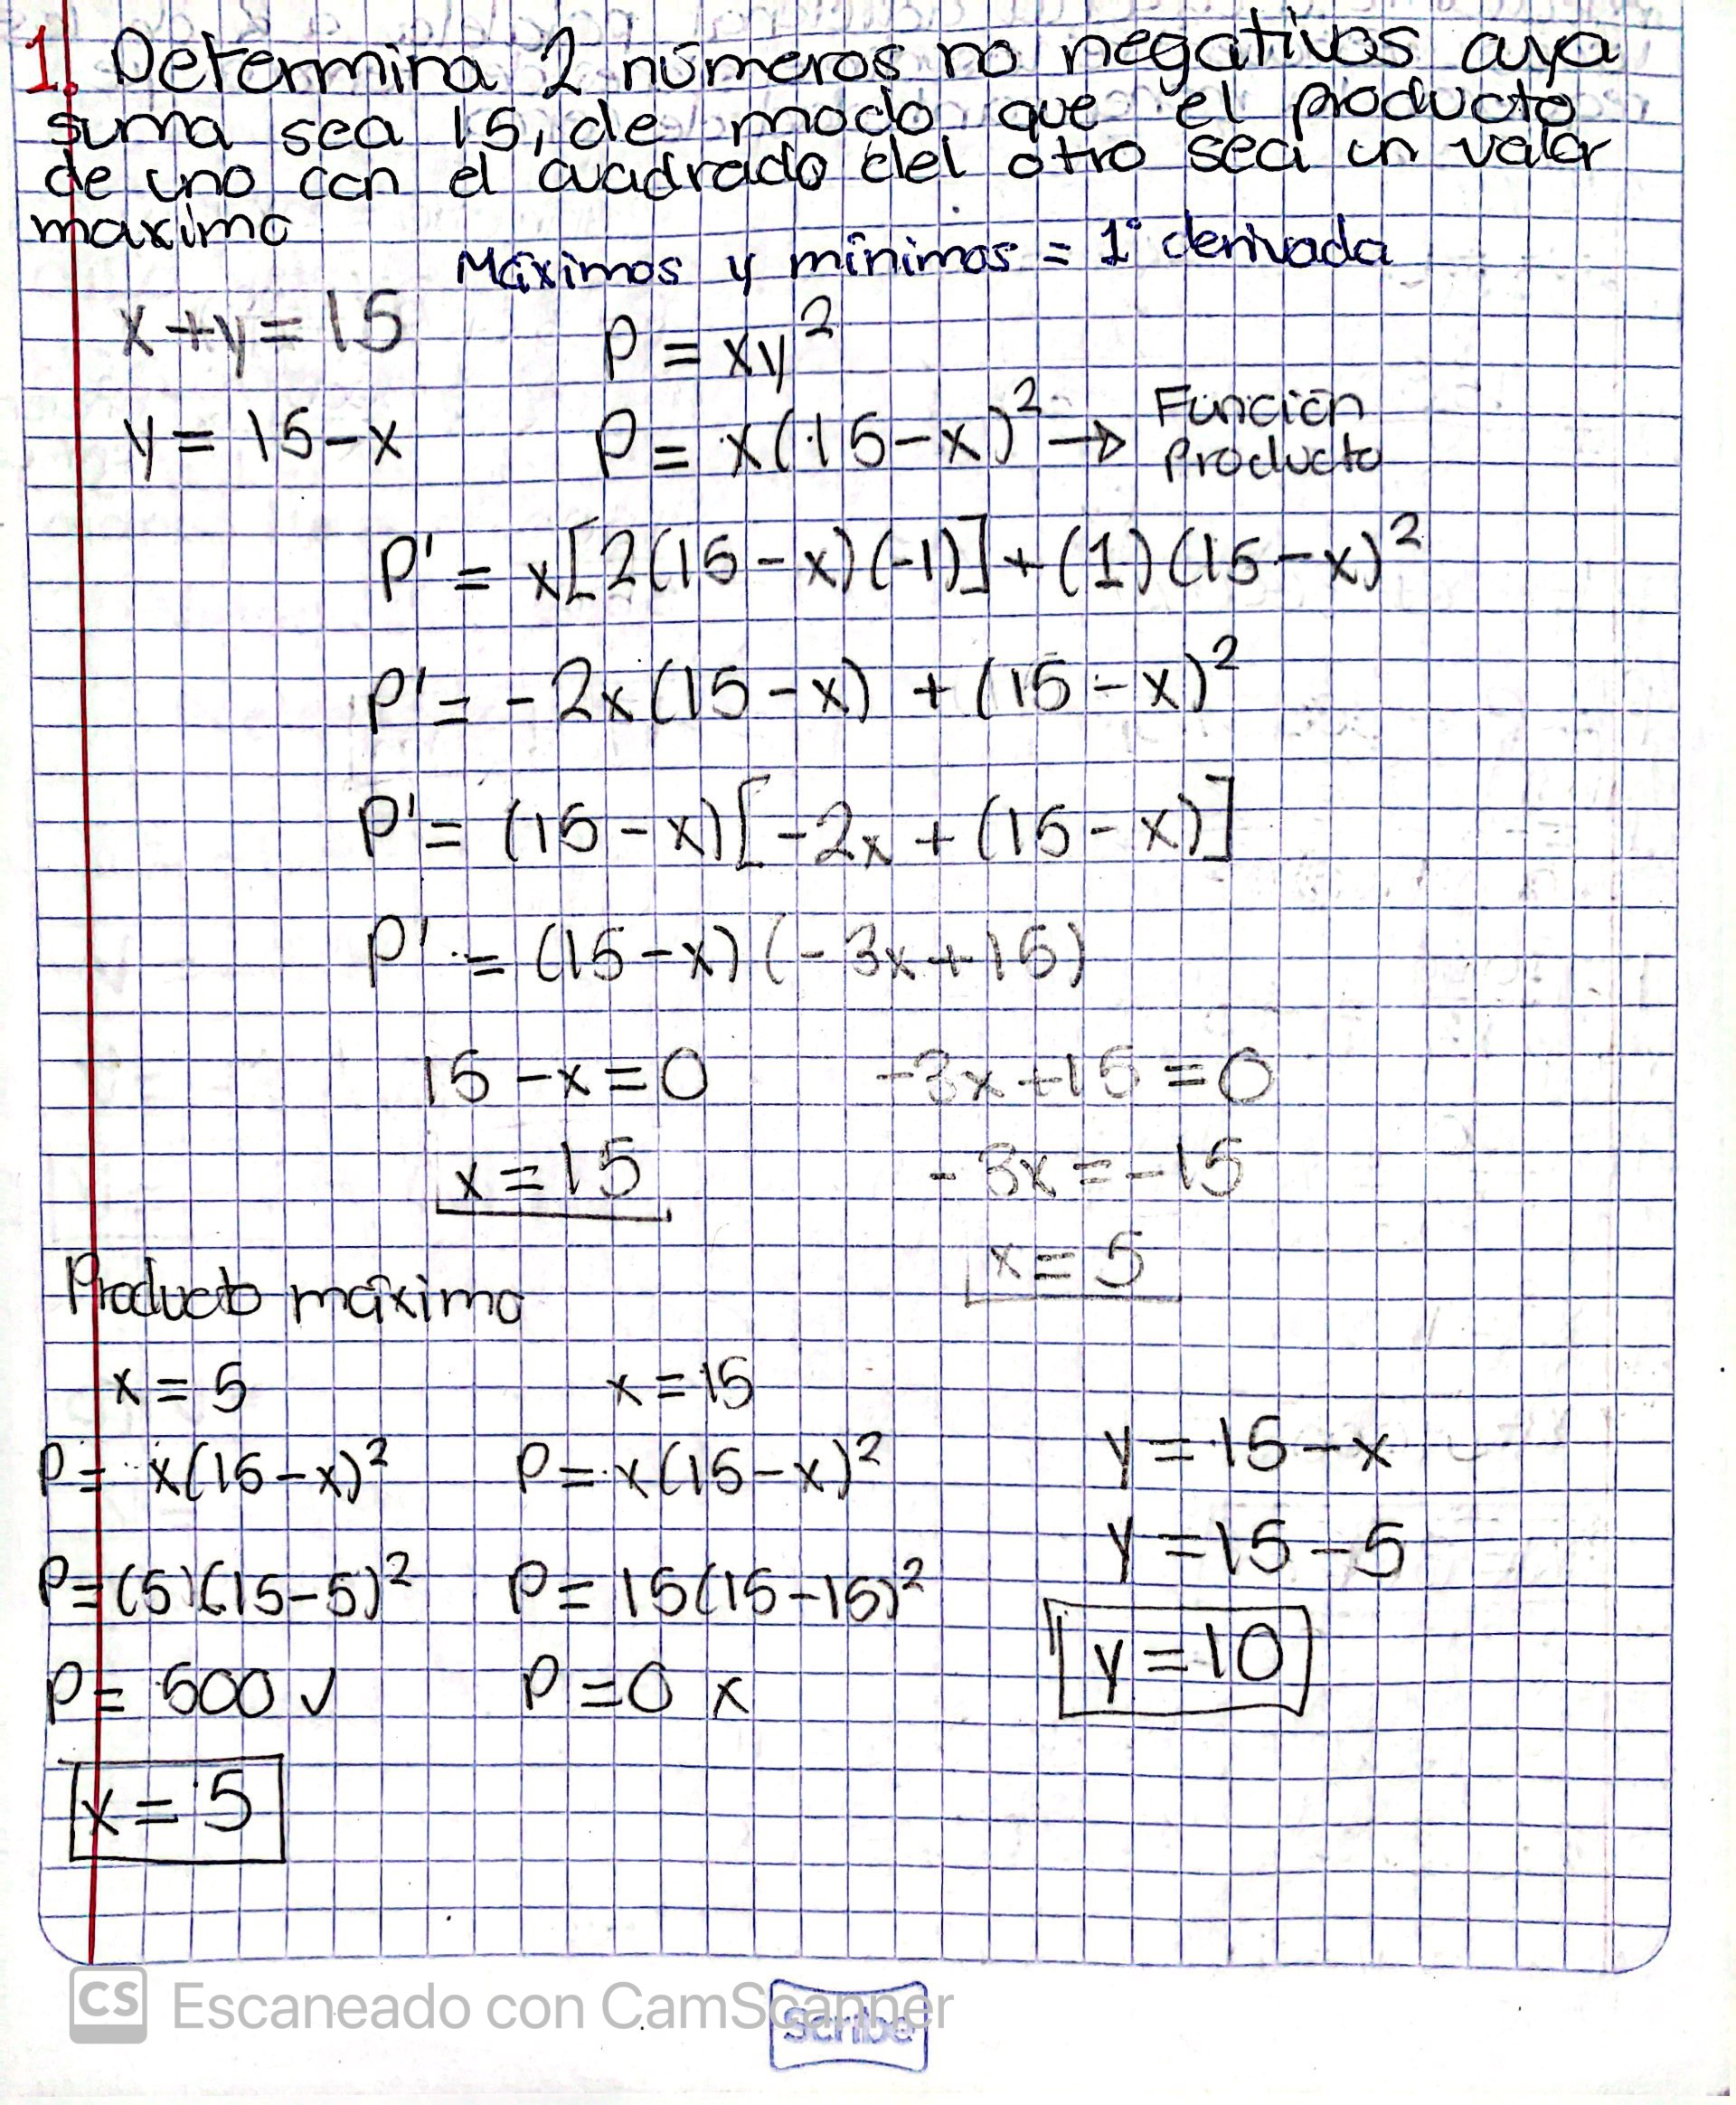 1. Determina 2 números no negativos cuya
suma sea 15, de modo que el producto
de uno con el cuadrado del otro sea un valor
maximo
Máximos y mínimos = 1° derivada
x + y = 15
P = xy²
y = 15 - x
P = x(15-x)² → Función
Producto
P' = x[2(15-x)(-1)] + (1)(15-x)²
P' = -2x(15-x) + (15-x)²
P' = (15-x)[-2x + (15-x)]
P' = (15-x)(-3x+15)
15 - x = 0
-3x + 15 = 0
x = 15
-3x = -15
x = 5
Producto máximo
x = 5
P = x(15-x)²
P = (5)(15-5)²
P = 500 ✓
x = 5
x = 15
P = x(15-x)²
P = 15(15-15)²
P = 0 x
y = 15 - x
y = 15 - 5
y = 10
CS Escaneado con CamScanner
Scribe